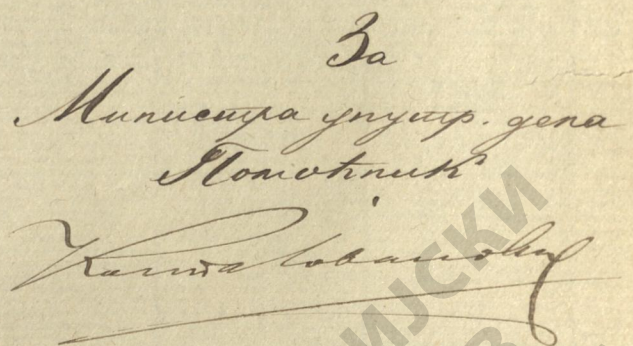 За
Министра унутр. дела
Помоћник
Коста Јовановић
ИЈСКИ